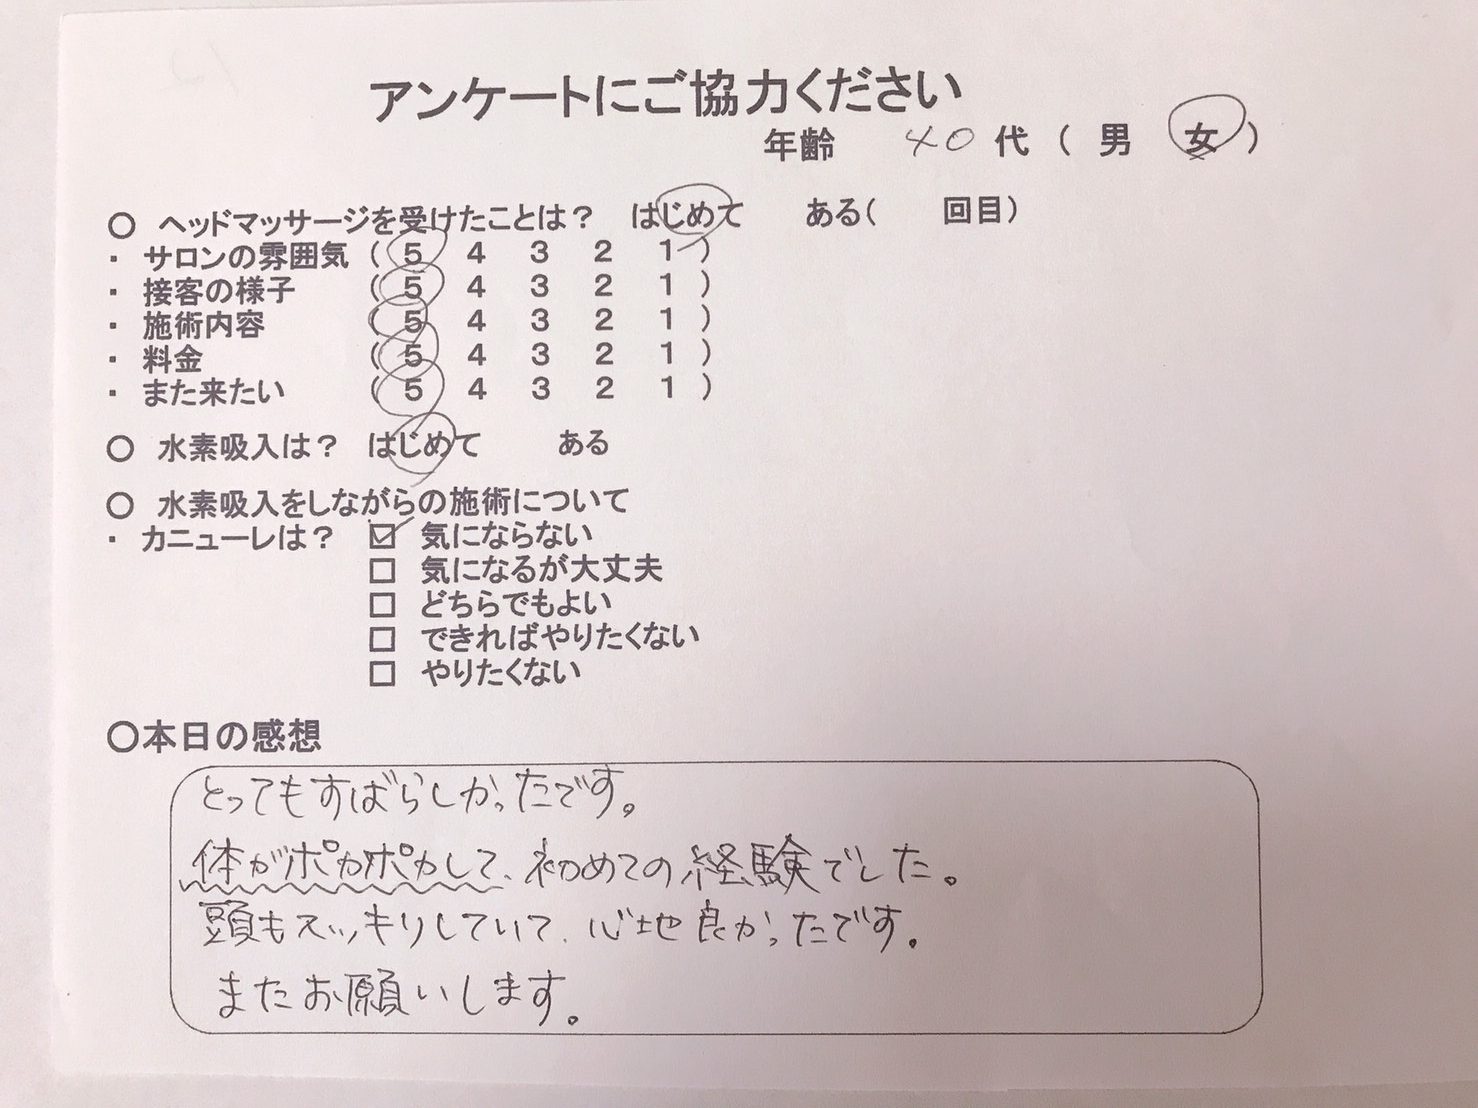 アンケートにご協力ください
年齢 40 代 ( 男 女 )
○ ヘッドマッサージを受けたことは？ はじめて ある( 回目)
・ サロンの雰囲気 ( 5 4 3 2 1 )
・ 接客の様子 ( 5 4 3 2 1 )
・ 施術内容 ( 5 4 3 2 1 )
・ 料金 ( 5 4 3 2 1 )
・ また来たい ( 5 4 3 2 1 )
○ 水素吸入は？ はじめて ある
○ 水素吸入をしながらの施術について
・ カニューレは？ ☑ 気にならない
□ 気になるが大丈夫
□ どちらでもよい
□ できればやりたくない
□ やりたくない
○本日の感想
とってもすばらしかったです。
体がポカポカして、初めての経験でした。
頭もスッキリしていて、心地良かったです。
またお願いします。